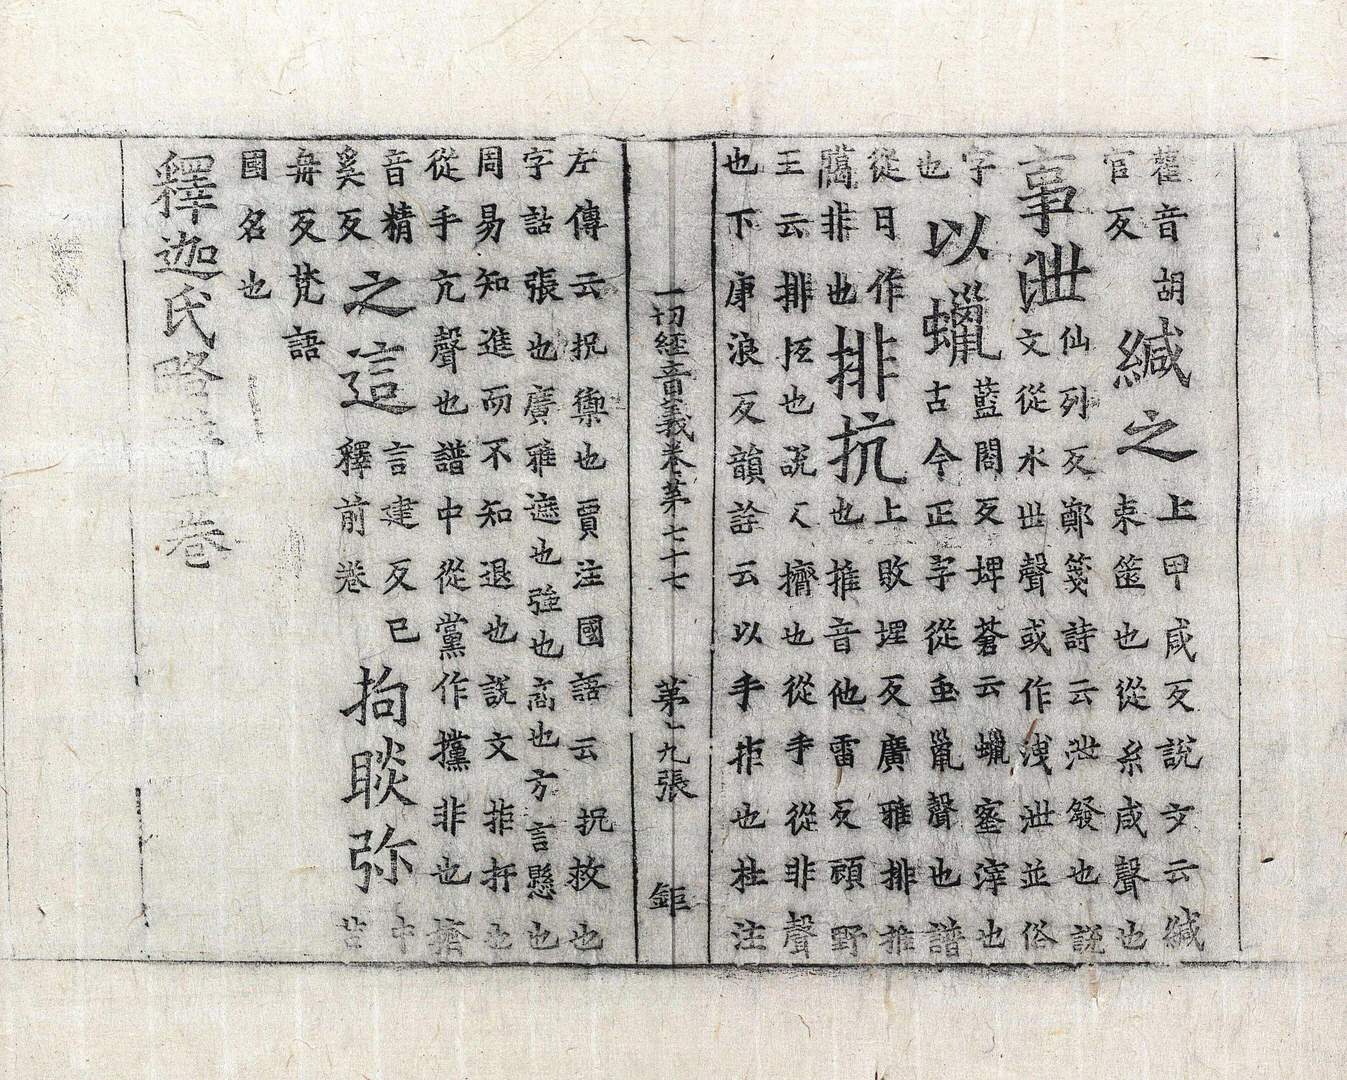 雚音胡
官反
緘之
上甲咸反說文云緘
束篋也從糸咸聲也
事泄
仙列反鄭箋詩云泄發也說
文從水世聲或作洩泄並俗
字
也
以蠟
藍閤反埤蒼云蠟蜜滓也
古今正字從虫巤聲也譜
從日作
臈非也
排抗
上敗埋反廣雅排推
也推音他雷反顧野
王云排抵也說文擠也從手從非聲
也下康浪反韻詮云以手拒也杜注
一切經音義卷第七十七 第十九張 鉅
左傳云抗禦也賈注國語云抗救也
字詁張也廣雅遮也強也高也方言懸也
周易知進而不知退也說文拒扞也
從手亢聲也譜中從黨作攩非也擠
音精
奚反
之這
言建反已
釋前卷
拘睒弥
中
苫
冉反梵語
國名也
釋迦氏略譜一卷